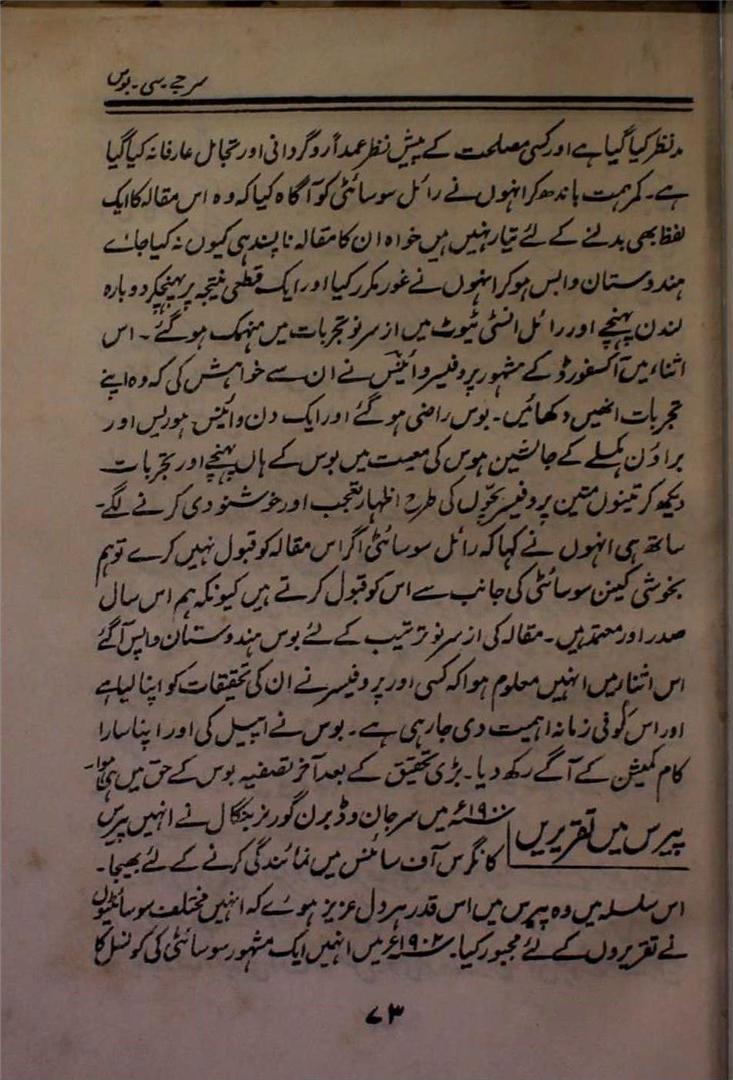 سر جے۔ سی۔ بوس
مدنظر کیا گیا ہے اور کسی مصلحت کے پیش نظر عمداً روگردانی اور تجاہل عارفانہ کیا گیا
ہے۔ کمر ہمت باندھ کر انہوں نے رائل سوسائٹی کو آگاہ کیا کہ وہ اس مقالہ کا ایک
لفظ بھی بدلنے کے لئے تیار نہیں ہیں خواہ ان کا مقالہ ناپسند ہی کیوں نہ کیا جائے
ہندوستان واپس ہو کر انہوں نے غور مکرر کیا اور ایک قطعی نتیجہ پر پہنچکر دوبارہ
لندن پہنچے اور رائل انسٹی ٹیوٹ میں از سر نو تجربات میں منہمک ہو گئے۔ اس
اثناء میں آکسفورڈ کے مشہور پروفیسر وائینس نے ان سے خواہش کی کہ وہ اپنے
تجربات انھیں دکھائیں۔ بوس راضی ہو گئے اور ایک دن وائینس ہوریس اور
براؤن ہکسلے کے جانشین ہوس کی معیت میں بوس کے ہاں پہنچے اور تجربات
دیکھ کر تینوں متین پروفیسر بچّوں کی طرح اظہار تعجب اور خوشنودی کرنے لگے۔
ساتھ ہی انہوں نے کہا کہ رائل سوسائٹی اگر اس مقالہ کو قبول نہیں کرے تو ہم
بخوشی لینن سوسائٹی کی جانب سے اس کو قبول کرتے ہیں کیونکہ ہم اس سال
صدر اور معتمد ہیں۔ مقالہ کی از سر نو ترتیب کے لئے بوس ہندوستان واپس آ گئے
اس اثناء میں انہیں معلوم ہوا کہ کسی اور پروفیسر نے ان کی تحقیقات کو اپنا لیا ہے
اور اس کو فی زمانہ اہمیت دی جا رہی ہے۔ بوس نے اپیل کی اور اپنا سارا
کام کمیشن کے آگے رکھ دیا۔ بڑی تحقیق کے بعد آخر تصفیہ بوس کے حق میں ہی ہوا۔
پیرس میں تقریریں
۱۹۰۰ء میں سر جان وڈ برن گورنر بنگال نے انہیں پیرس
کانگرس آف سائنس میں نمائندگی کرنے کے لئے بھیجا۔
اس سلسلہ میں وہ پیرس میں اس قدر ہر دل عزیز ہوئے کہ انہیں مختلف سوسائٹیوں
نے تقریروں کے لئے مجبور کیا۔ ۱۹۰۲ء میں انہیں ایک مشہور سوسائٹی کی کونسل کا
۷۳